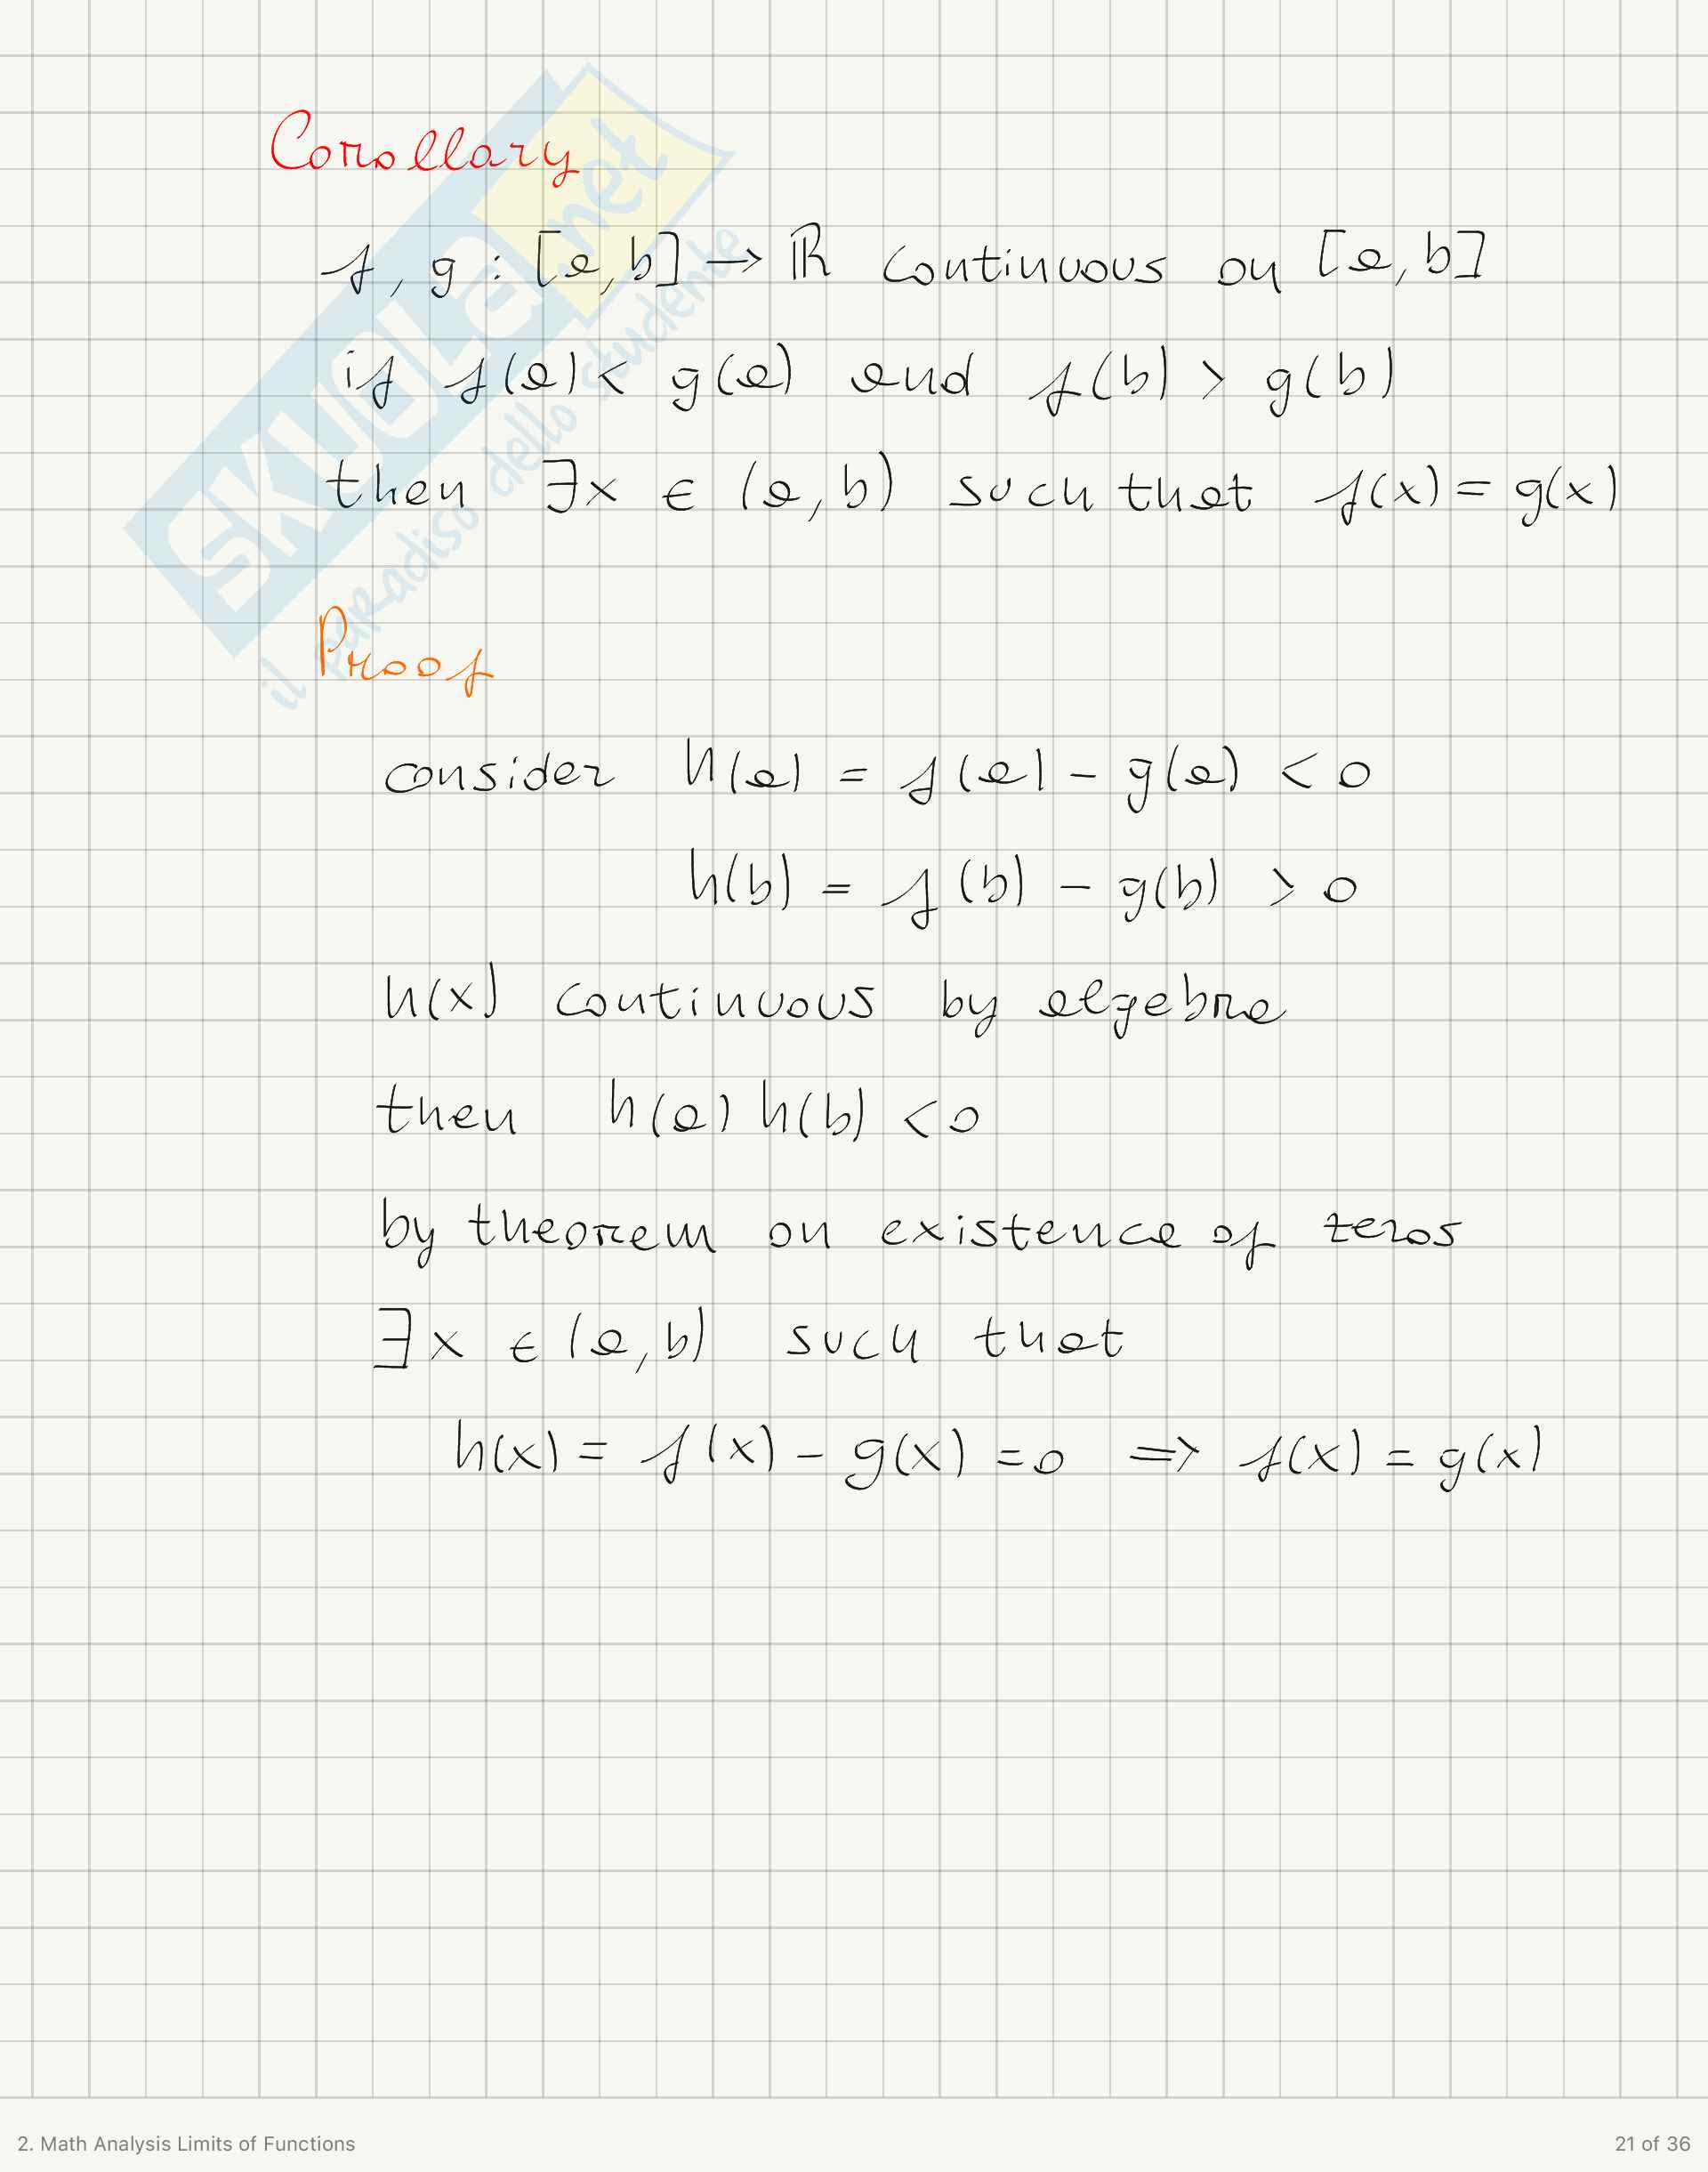 Corollary
f, g : [a, b] → ℝ continuous on [a, b]
if f(a) < g(a) and f(b) > g(b)
then ∃x ∈ (a, b) such that f(x) = g(x)
Proof
consider h(a) = f(a) - g(a) < 0
h(b) = f(b) - g(b) > 0
h(x) continuous by algebra
then h(a) h(b) < 0
by theorem on existence of zeros
∃x ∈ (a, b) such that
h(x) = f(x) - g(x) = 0 ⇒ f(x) = g(x)
SKUOLA.net
il paradiso dello studente
2. Math Analysis Limits of Functions
21 of 36